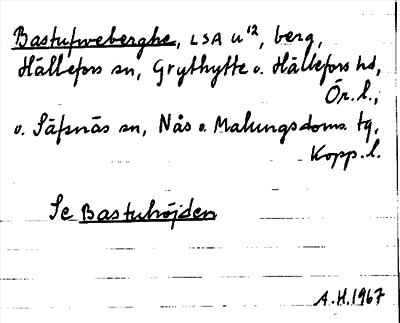 Bastufweberghe, LSA U¹², berg,
Hällefors sn, Grythytte o. Hällefors hd,
Ör. l.;
o. Säfsnäs sn, Nås o. Malungs doms. tg,
Kopp. l.
Se Bastuhöjden
A.H. 1967